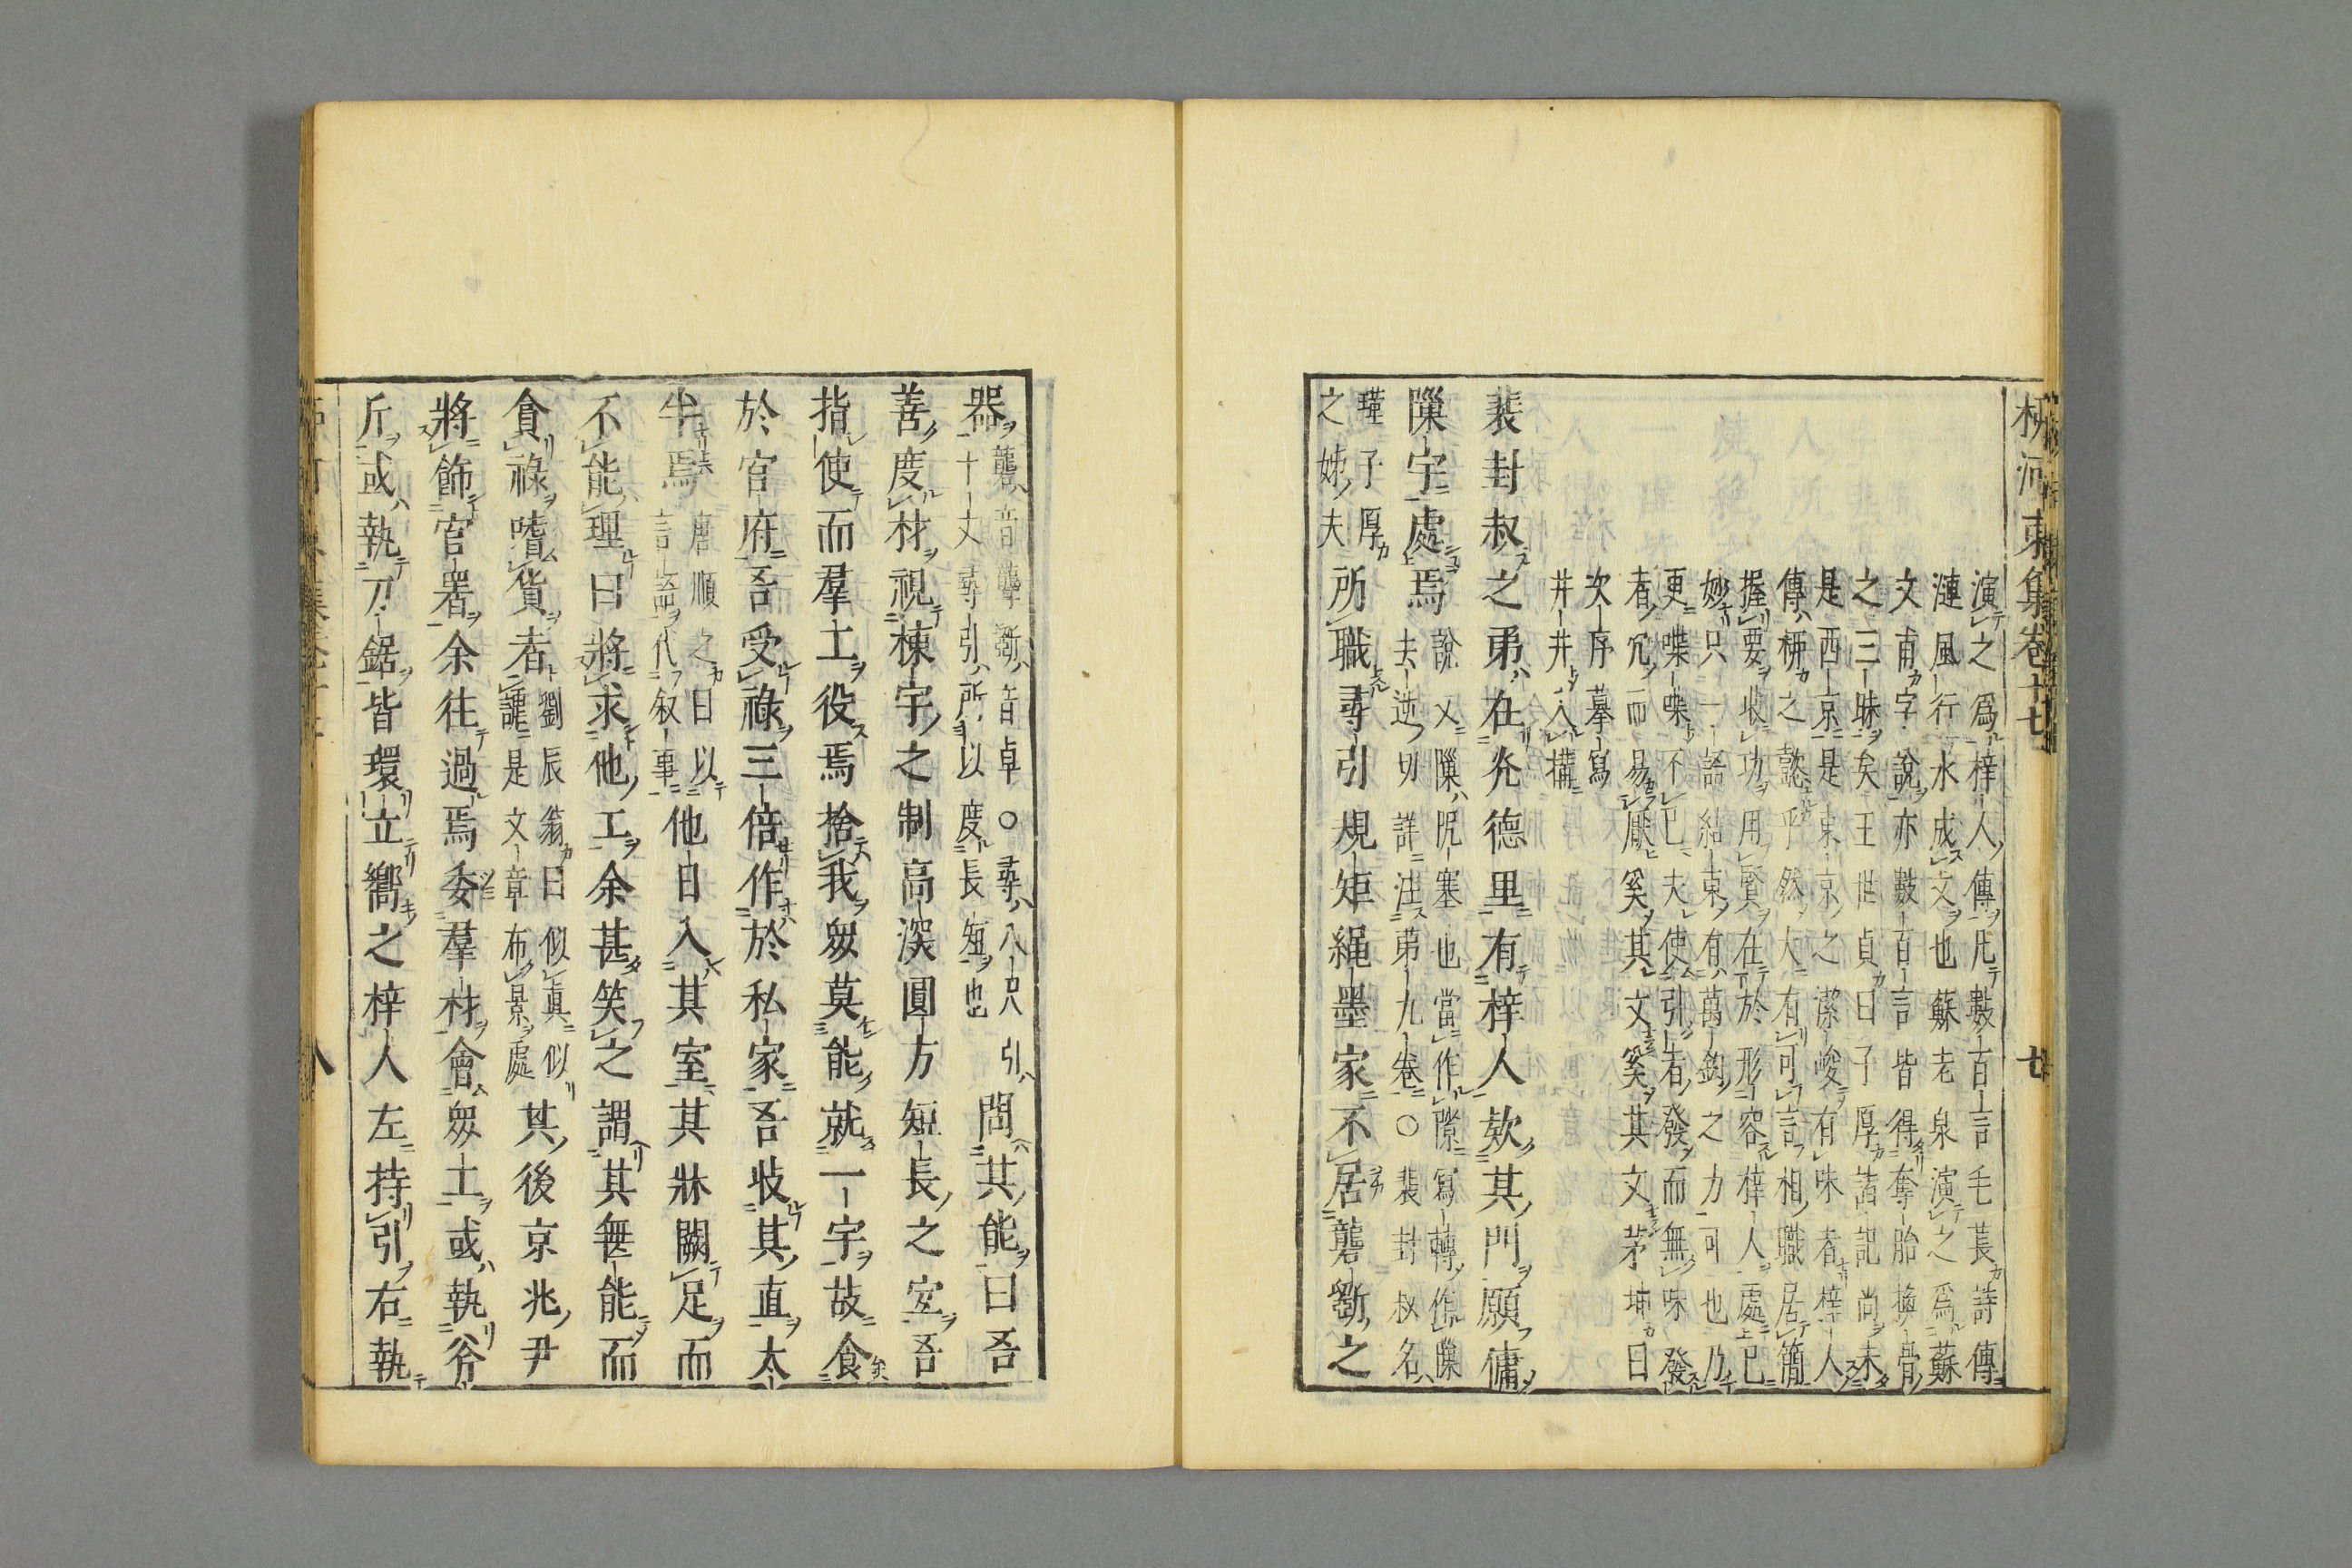 柳河東集卷十七 七
演之爲梓人傳凡數百言毛萇詩傳
漣風行水成文也蘇老泉演之爲蘇
文甫字說亦數百言皆得奪胎換骨
之三昧矣王世貞曰子厚諸記尚未
是西京是東京之潔峻有味者梓人
傳柳之懿乎然大有可言相職居簡
握要收功用賢在於形容梓人處已
妙只一語結束有萬鈞之力可也乃
更喋喋不已夫使引者發而無味發
者冗而易厭奚其文奚其文茅坤曰
次序摹寫
井井入搆
裴封叔之弟在光德里有梓人欵其門願傭
隟宇處焉
說文隟阸塞也當作隙寫轉作隟
去逆切詳注苐九卷○裴封叔名
瑾子厚
之姊夫
所職尋引規矩繩墨家不居礱斲之
器
礱音聾斲音卓○尋八尺引
十丈尋引所以度長短也
問其能曰吾
善度材視棟宇之制高深圓方短長之宐吾
指使而羣工役焉捨我衆莫能就一宇故食
於官府吾受祿三倍作於私家吾收其直太
半焉
唐順之曰以
言語代叙事
他日入其室其牀闕足而
不能理曰將求他工余甚笑之謂其無能而
貪祿嗜貨者
劉辰翁曰似眞似
謔是文章布景處
其後京兆尹
將飾官署余往過焉委羣材會衆工或執斧
斤或執刀鋸皆環立嚮之梓人左持引右執
八